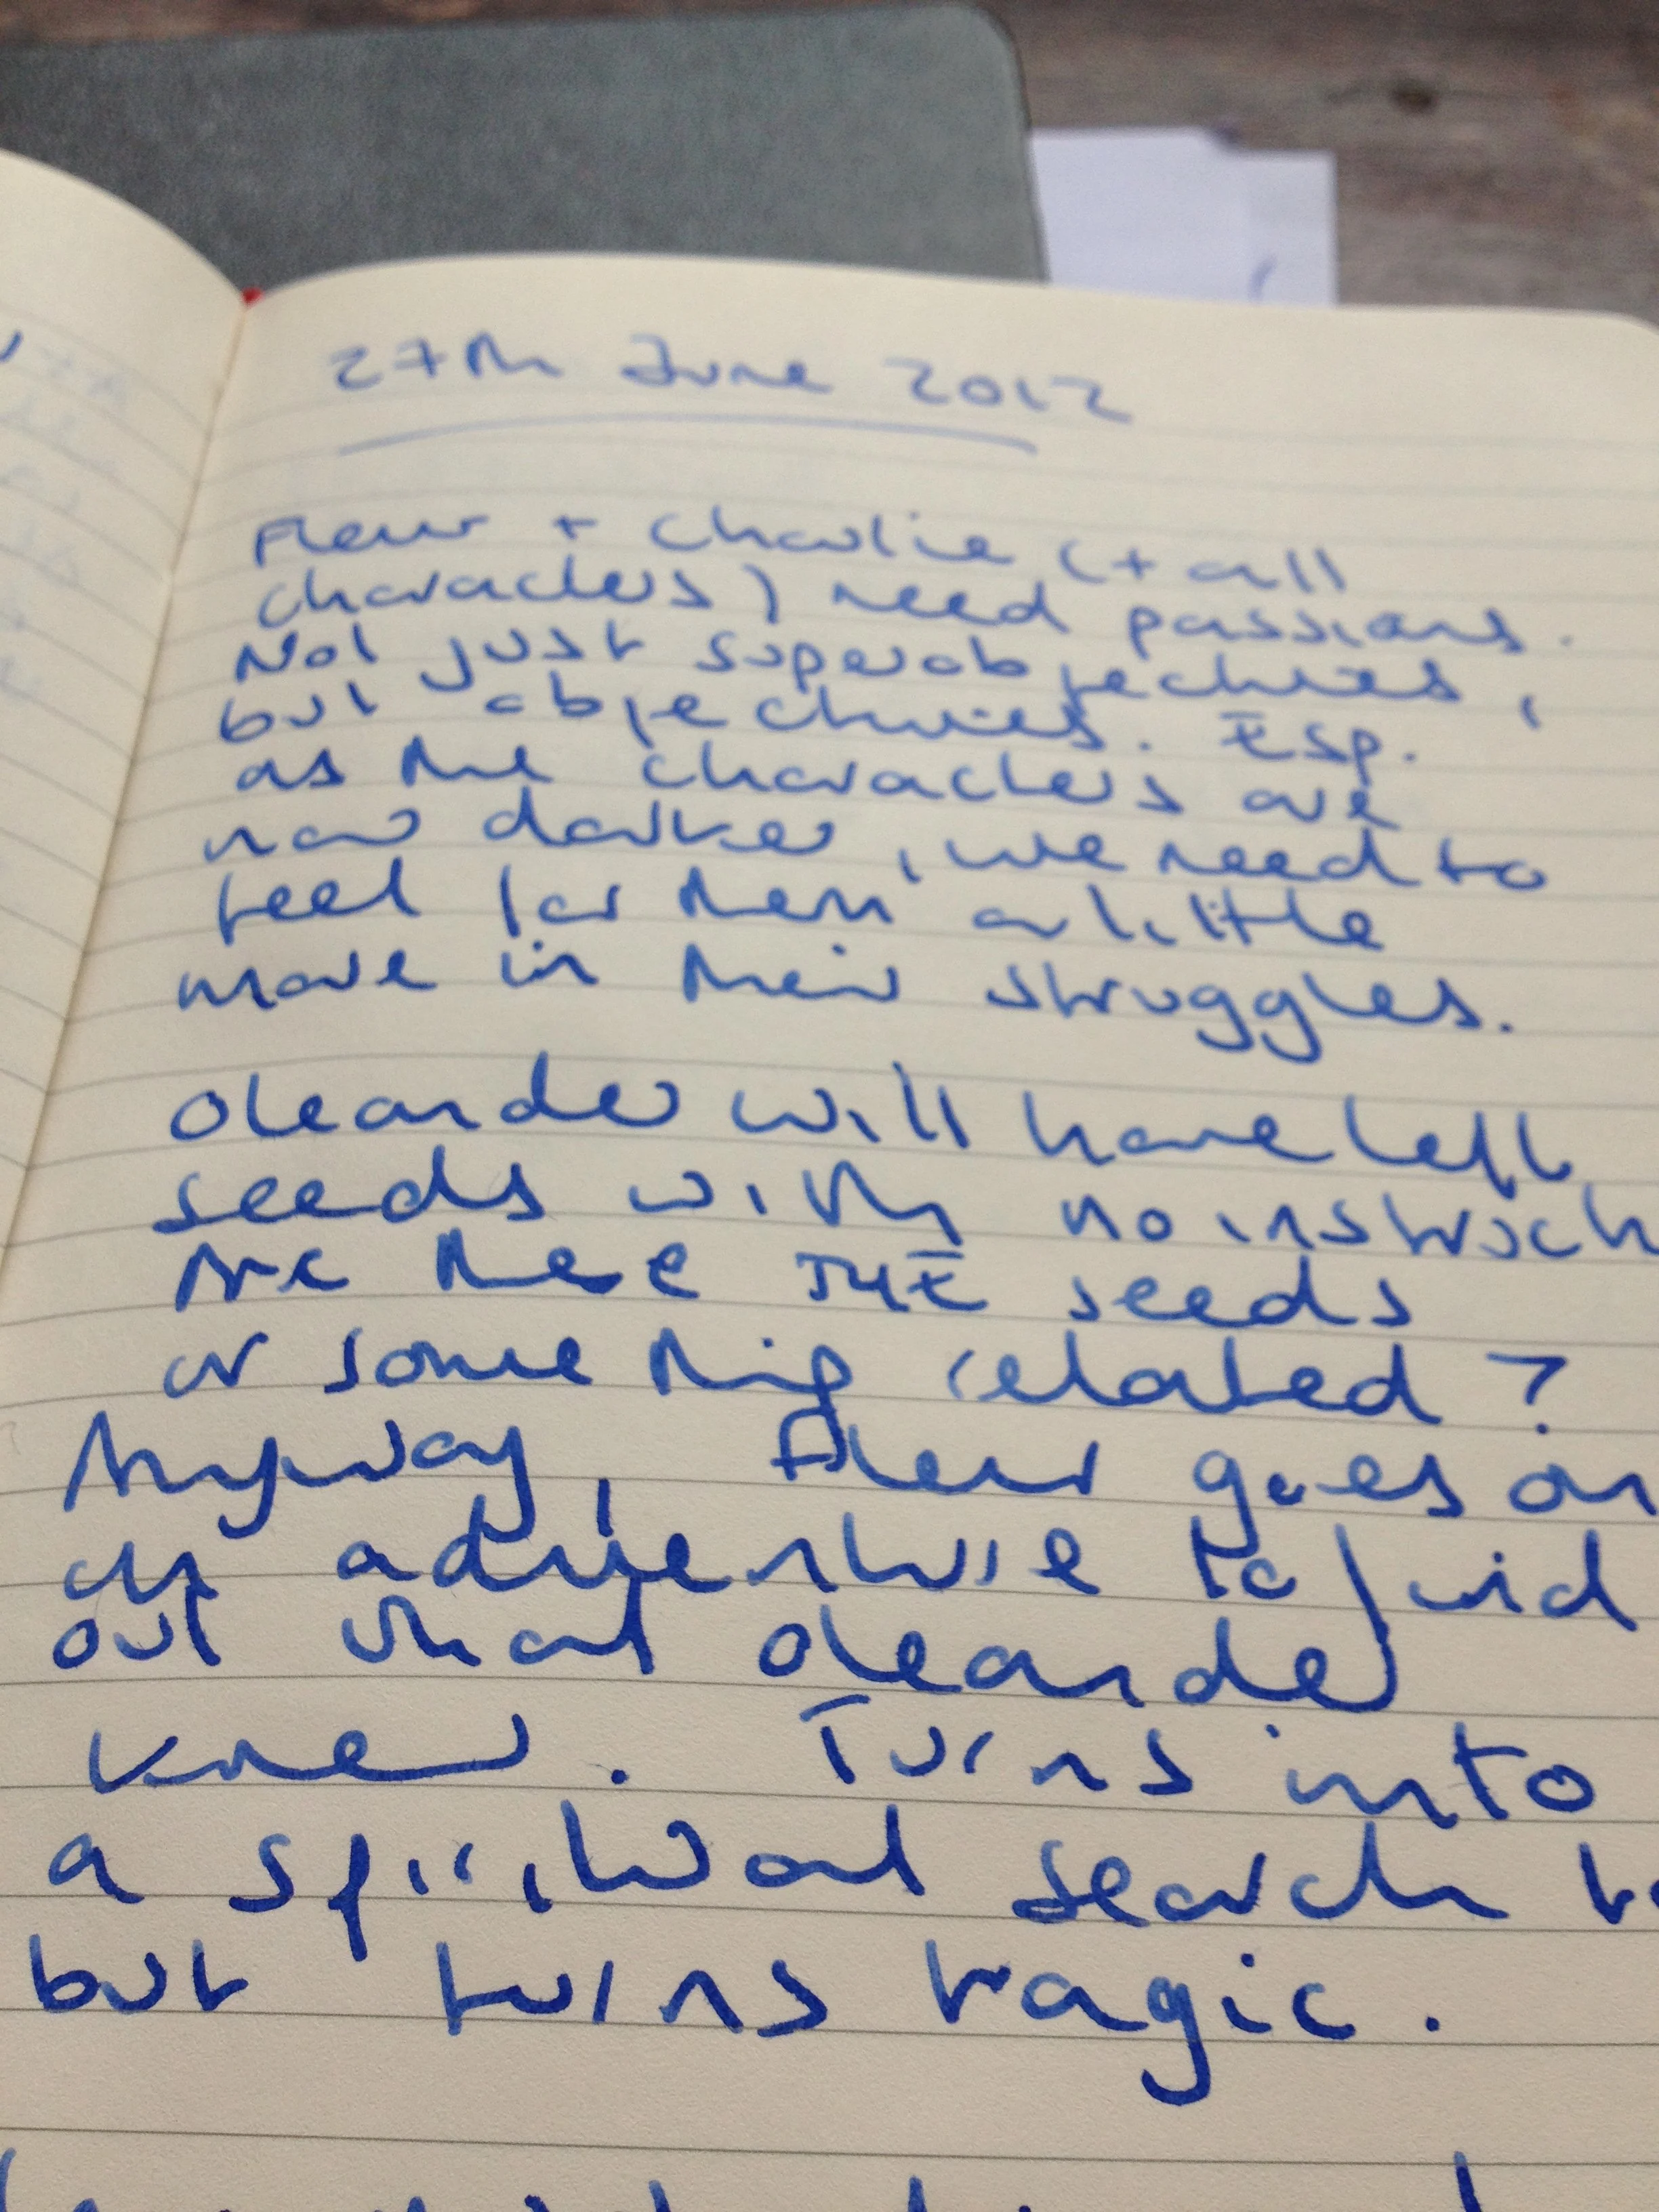 27th June 2012
Fleur + Charlie (+ all
characters) need passions.
Not just superobjectives,
but objectives. Esp.
as the characters are
now darker, we need to
feel for them a little
more in their struggles.
Oleander will have left
seeds with no instruch
Are these THE seeds
or something related?
Anyway, Fleur goes on
an adventure to find
out what Oleander
knew. Turns into
a spiritual search
but turns tragic.